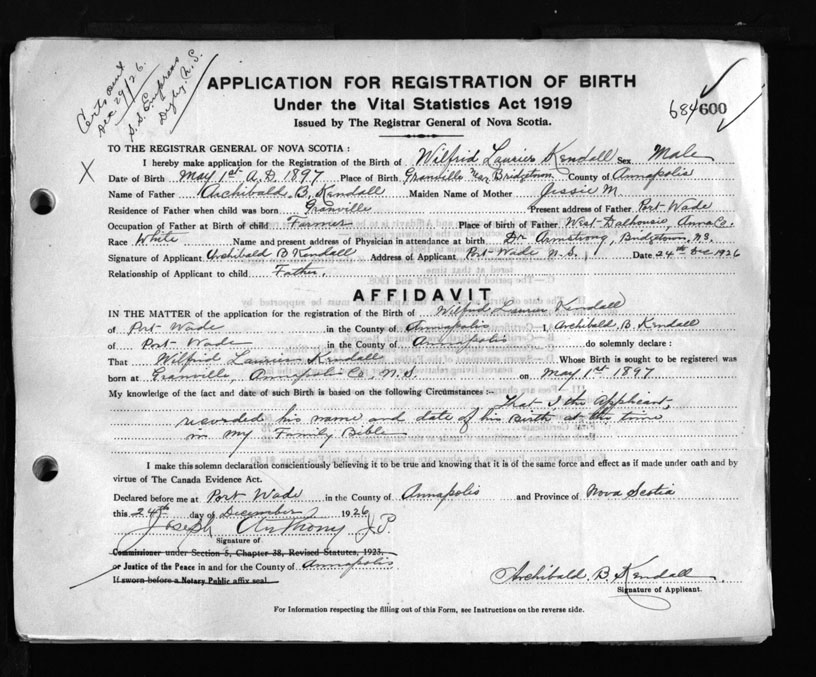 Certs sent
Dec. 29/26.
S.S. Empress
Digby, N.S.
APPLICATION FOR REGISTRATION OF BIRTH
Under the Vital Statistics Act 1919
Issued by The Registrar General of Nova Scotia.
684600
TO THE REGISTRAR GENERAL OF NOVA SCOTIA :
X
I hereby make application for the Registration of the Birth of Wilfrid Laurier Kendall Sex Male
Date of Birth May 1st A.D. 1897 Place of Birth Granville Near Bridgetown County of Annapolis
Name of Father Archibald B. Kendall Maiden Name of Mother Jessie M.
Residence of Father when child was born Granville Present address of Father Port Wade
Occupation of Father at Birth of child Farmer Place of birth of Father West Dalhousie, Anna Co.
Race White Name and present address of Physician in attendance at birth Dr. Armstrong, Bridgetown, N.S.
Signature of Applicant Archibald B Kendall Address of Applicant Port Wade N.S. Date 24th Dec 1926
Relationship of Applicant to child Father.
AFFIDAVIT
IN THE MATTER of the application for the registration of the Birth of Wilfrid Laurier Kendall
of Port Wade in the County of Annapolis I, Archibald B. Kendall
of Port Wade in the County of Annapolis do solemnly declare :
That Wilfrid Laurier Kendall Whose Birth is sought to be registered was
born at Granville, Annapolis Co, N.S on May 1st 1897
My knowledge of the fact and date of such Birth is based on the following Circumstances :— That I the Applicant,
recorded his name and date of his Birth at the time
in my Family Bible
I make this solemn declaration conscientiously believing it to be true and knowing that it is of the same force and effect as if made under oath and by
virtue of The Canada Evidence Act.
Declared before me at Port Wade in the County of Annapolis and Province of Nova Scotia
this 24th day of December 1926
Joseph Anthony J.P.
Signature of
Commissioner under Section 5, Chapter 38, Revised Statutes, 1923.
or Justice of the Peace in and for the County of Annapolis
If sworn before a Notary Public affix seal
Archibald. B. Kendall
Signature of Applicant.
For Information respecting the filling out of this Form, see Instructions on the reverse side.